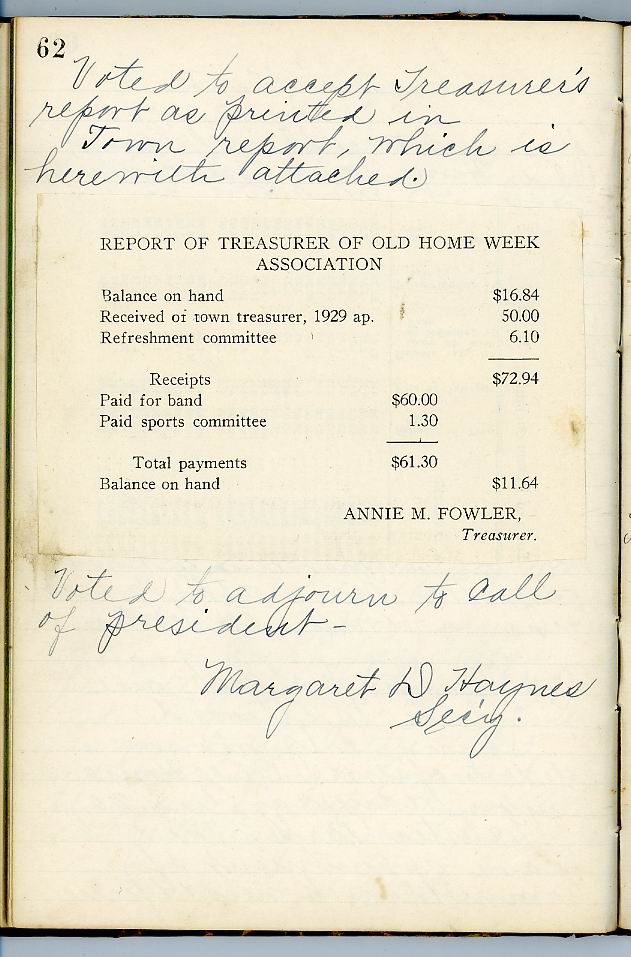 62
Voted to accept Treasurer's
report as printed in
Town report, which is
herewith attached.
REPORT OF TREASURER OF OLD HOME WEEK
ASSOCIATION
Balance on hand $16.84
Received of town treasurer, 1929 ap. 50.00
Refreshment committee 6.10
Receipts $72.94
Paid for band $60.00
Paid sports committee 1.30
Total payments $61.30
Balance on hand $11.64
ANNIE M. FOWLER,
Treasurer.
Voted to adjourn to call
of president –
Margaret D Haynes
Sec'y.